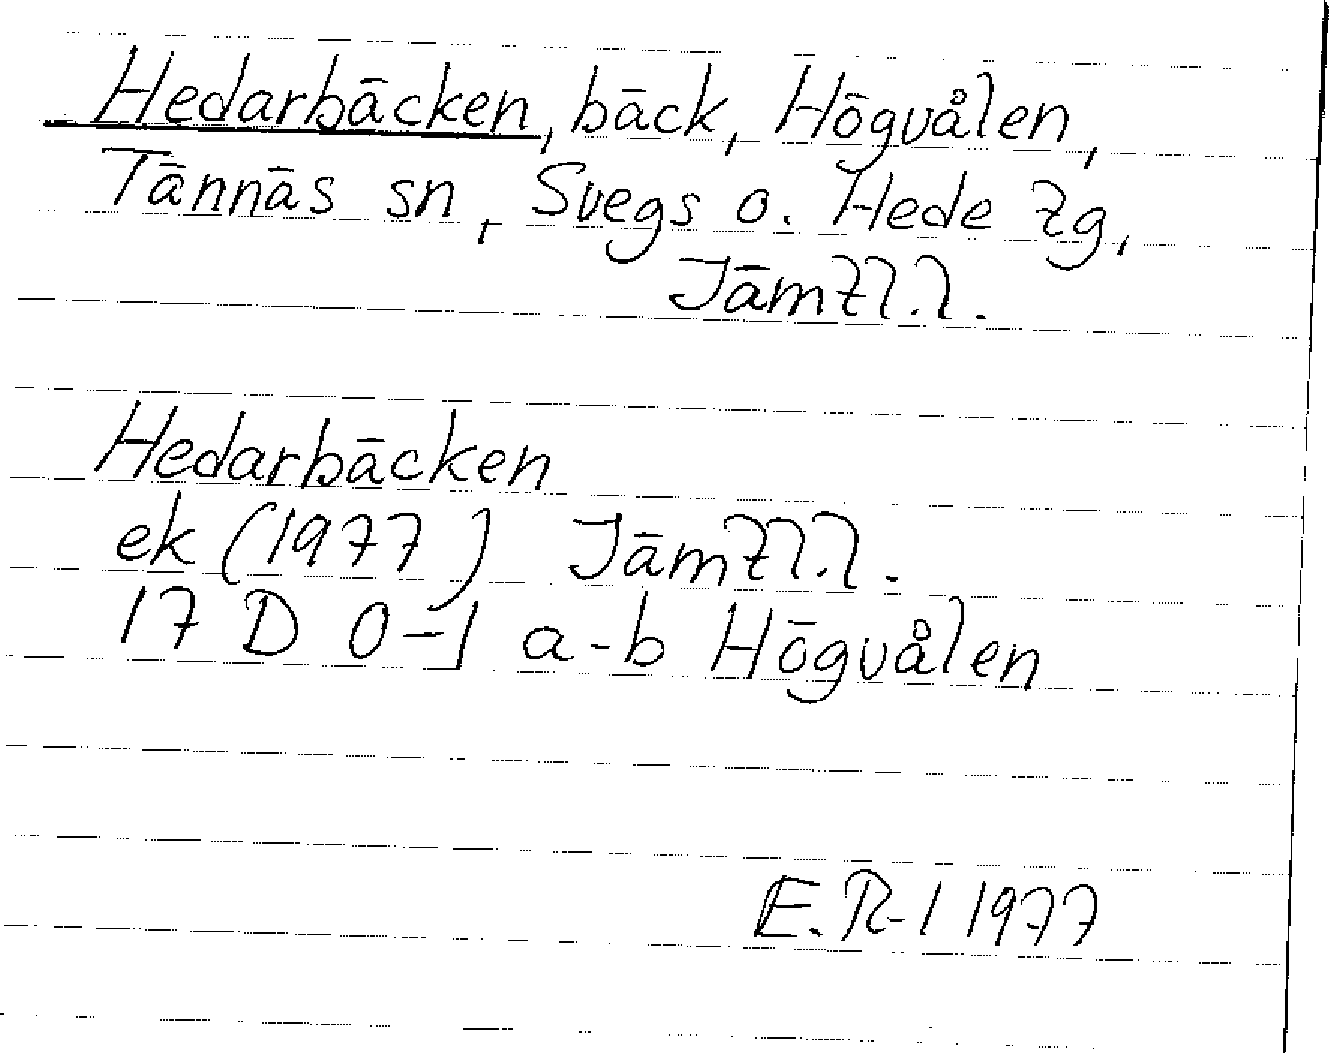 Hedarbäcken, bäck, Högvålen,
Tännäs sn, Svegs o. Hede tg,
Jämtl.l.
Hedarbäcken
ek (1977) Jämtl.l.
17 D 0-1 a-b Högvålen
E.R-l 1977